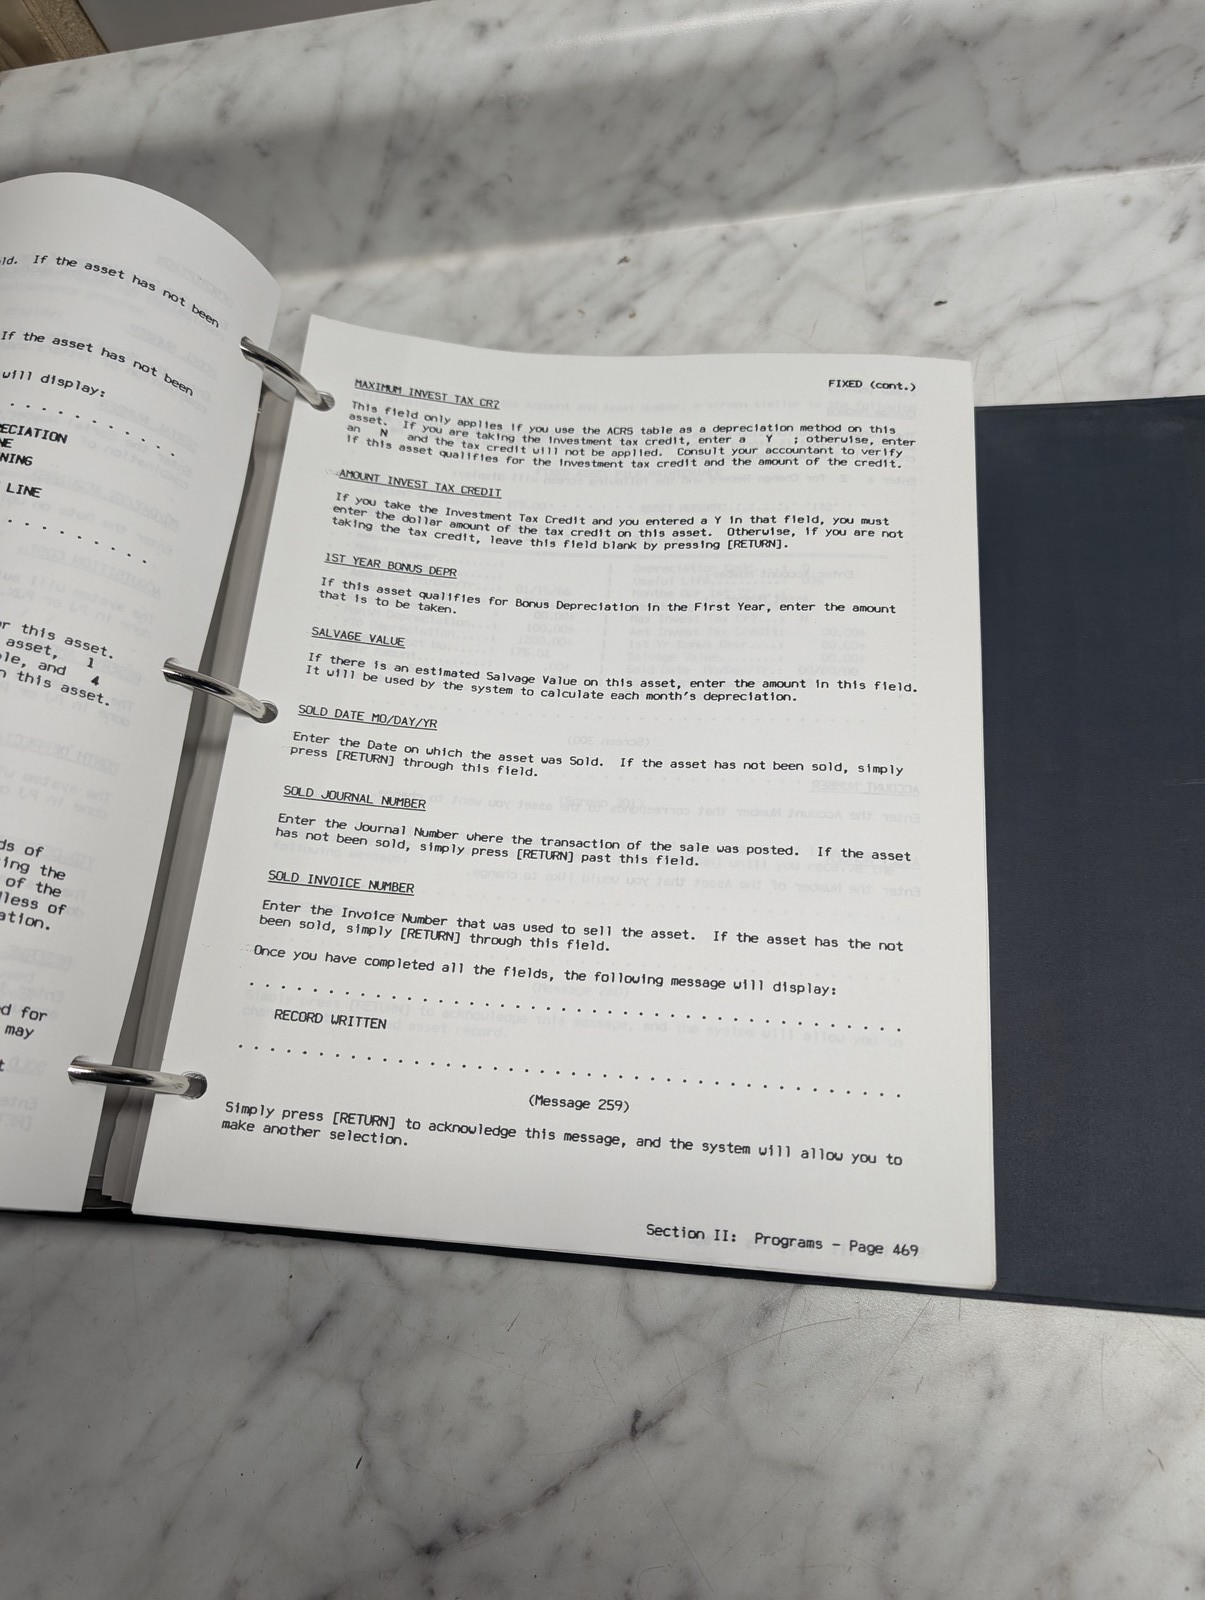 ld. If the asset has not been
If the asset has not been
will display:
. . . . . . . . . . .
ECIATION
NE
NING
LINE
. . . . . . . . .
r this asset.
asset, 1
le, and 4
n this asset.
ds of
ing the
of the
lless of
ation.
d for
may
t
FIXED (cont.)
MAXIMUM INVEST TAX CR?
This field only applies if you use the ACRS table as a depreciation method on this
asset. If you are taking the investment tax credit, enter a Y ; otherwise, enter
an N and the tax credit will not be applied. Consult your accountant to verify
if this asset qualifies for the investment tax credit and the amount of the credit.
AMOUNT INVEST TAX CREDIT
If you take the Investment Tax Credit and you entered a Y in that field, you must
enter the dollar amount of the tax credit on this asset. Otherwise, if you are not
taking the tax credit, leave this field blank by pressing [RETURN].
1ST YEAR BONUS DEPR
If this asset qualifies for Bonus Depreciation in the First Year, enter the amount
that is to be taken.
SALVAGE VALUE
If there is an estimated Salvage Value on this asset, enter the amount in this field.
It will be used by the system to calculate each month's depreciation.
SOLD DATE MO/DAY/YR
Enter the Date on which the asset was Sold. If the asset has not been sold, simply
press [RETURN] through this field.
SOLD JOURNAL NUMBER
Enter the Journal Number where the transaction of the sale was posted. If the asset
has not been sold, simply press [RETURN] past this field.
SOLD INVOICE NUMBER
Enter the Invoice Number that was used to sell the asset. If the asset has the not
been sold, simply [RETURN] through this field.
Once you have completed all the fields, the following message will display:
. . . . . . . . . . . . . . . . . . . . . . . . . . . . . . . . . . . . . . . . . .
RECORD WRITTEN
. . . . . . . . . . . . . . . . . . . . . . . . . . . . . . . . . . . . . . . . . .
(Message 259)
Simply press [RETURN] to acknowledge this message, and the system will allow you to
make another selection.
Section II: Programs - Page 469